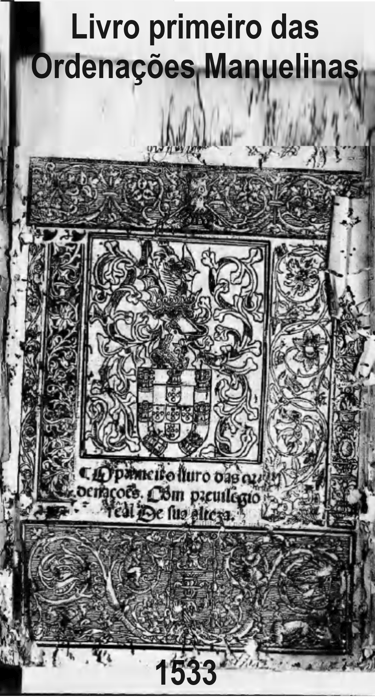 Livro primeiro das
Ordenações Manuelinas
¶ O primeiro liuro das or
denações. Com preuilegio
real De sua alteza.
1533